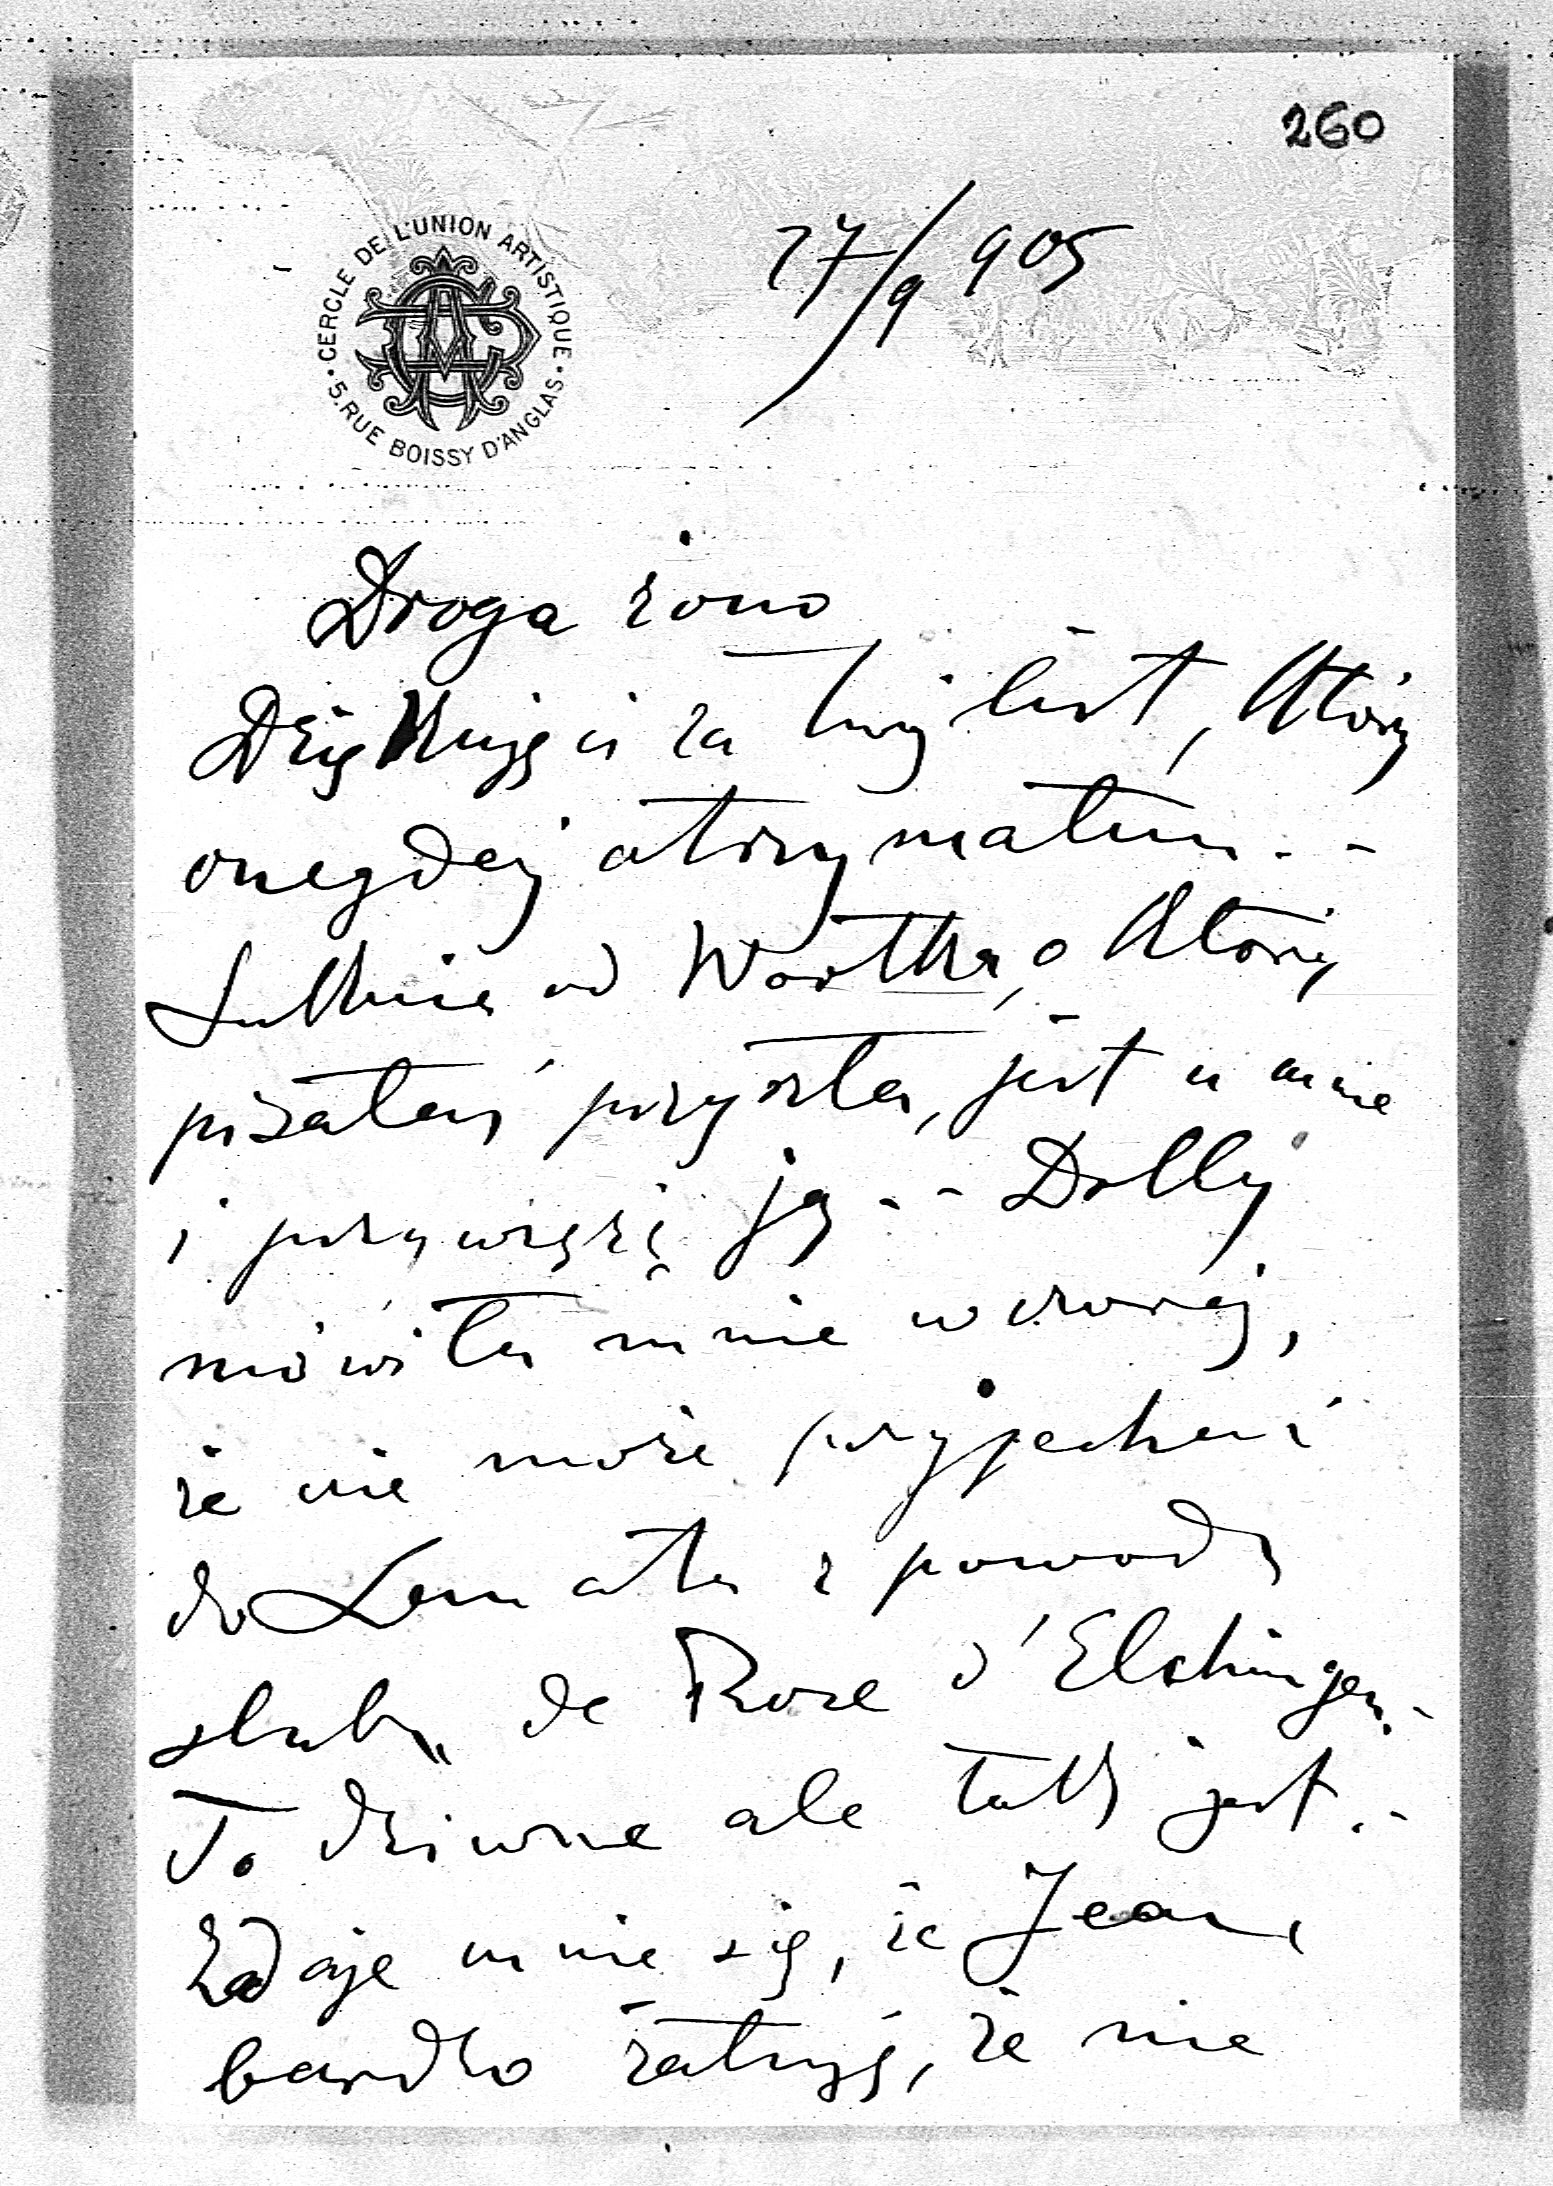 260
CERCLE DE L'UNION ARTISTIQUE
5. RUE BOISSY D'ANGLAS
27/9 905
Droga żono
Dziękuję ci za twój list, który
onegdaj otrzymałem. -
Suknia od Wortha, o której
pisałaś przyszła, jest u mnie
i przywiozę ją. - Dolly
mówiła mnie wczoraj,
że nie może przyjechać
do Łańcuta z powodu
ślubu de Rose d'Elchingen. -
To dziwne ale tak jest. -
Zdaje mnie się, że Jean,
bardzo żałuję, że nie